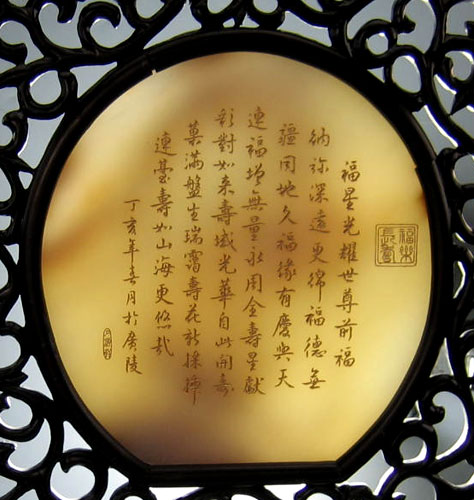 福樂長壽
福星光耀世尊前福
納祢深遠更綿福德無
疆同地久福緣有慶與天
連福增無量永周全壽星獻
彩對如来壽域光華自此開壽
菓滿盤生瑞靄壽花新採插
蓮臺壽如山海更悠哉
丁亥年春月於廣陵